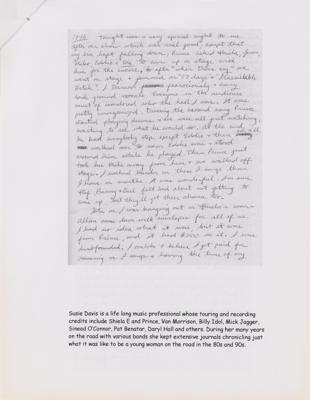 Tonight was a very special night to me
after our show which was real good, except that
my bra kept falling down, Prince asked Sheila, Juan,
Mike, Eddie + me to come up on stage with
him for the encore,
went on stage + danced on "17 days" + "Irresistible
Bitch". I Danced ferociously + sang
back ground vocals. Everyone in the audience
must of wondered who the hell I was. It was
pretty unorganized. During the second song Prince
started playing drums + we were all just watching,
waiting to see what he would do. At the end
he had everybody stop except Eddie + then
walked over to where Eddie was + stood
around him while he played. Then Prince just
took his Stick away from him + we walked off
stage. I worked harder in those 2 songs than
I have in months. It was wonderful. I'm sure
Stef, Benny + Bill felt bad about not getting to
come up. But they'll get there chance too.
Later on I was hanging out in Sheila's room +
Allan came down with envelopes for all of us.
I had no idea what it was, but it was
from Prince, and it had $200 in it. I was
dumbfounded. I couldn't believe I got paid for
dancing on 2 songs + having the time of my
Susie Davis is a life long music professional whose touring and recording
credits include Shiela E and Prince, Van Morrison, Billy Idol, Mick Jagger,
Sinead O'Connor, Pat Benatar, Daryl Hall and others. During her many years
on the road with various bands she kept extensive journals chronicling just
what it was like to be a young woman on the road in the 80s and 90s.